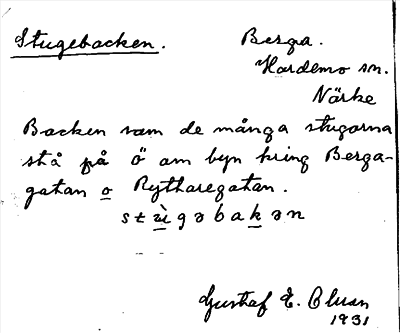 Stugebacken.
Berga.
Hardemo sn.
Närke
Backen vam de många stugorna
stå på ö am byn kring Berga-
gatan o Rytharegatan.
stùgəbakən
Gustaf E.
1931